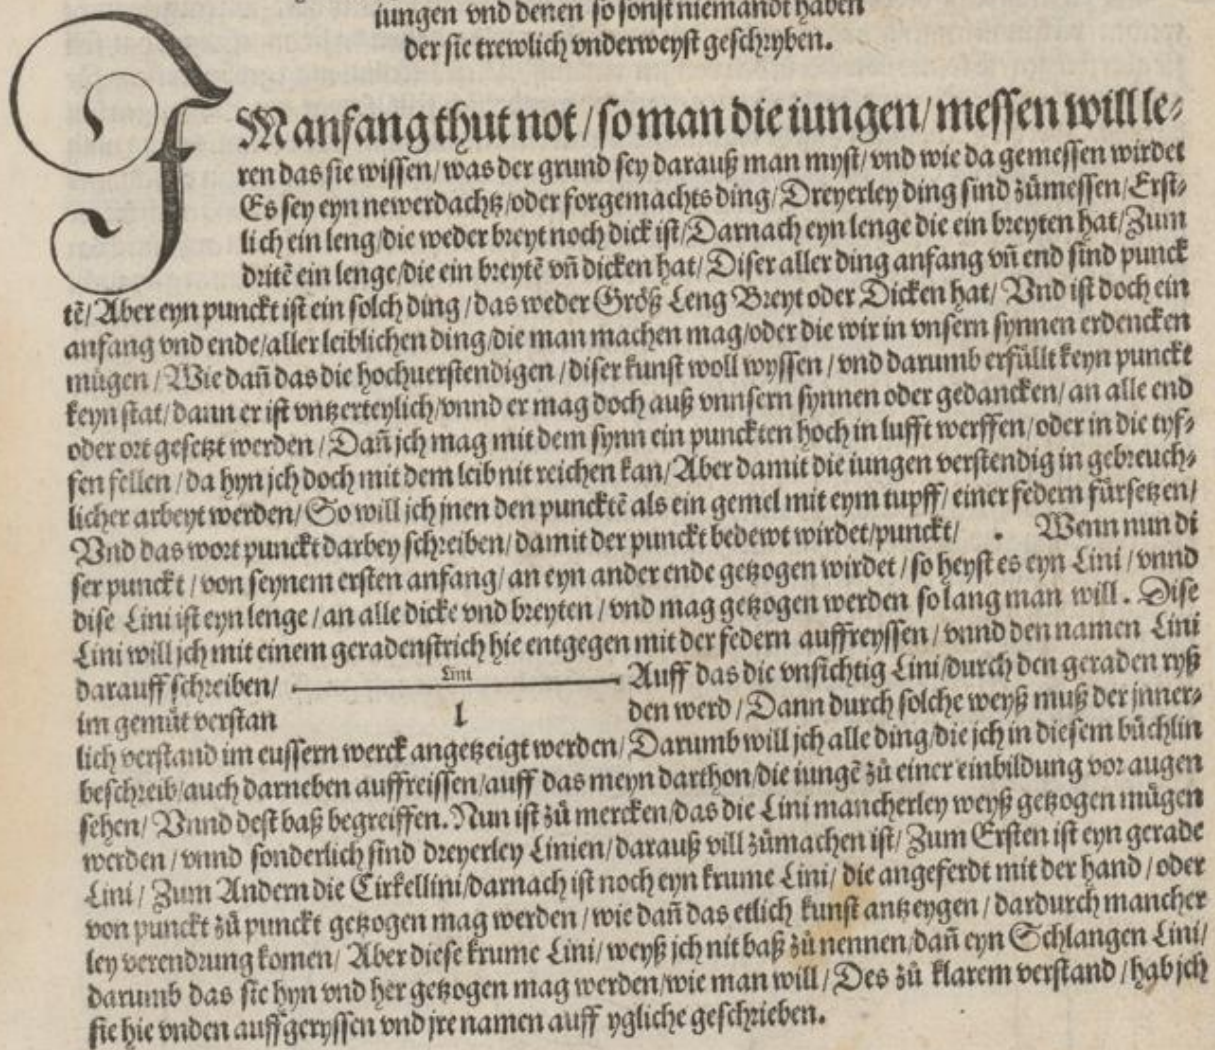 iungen vnd denen so sonst niemandt haben
der sie trewlich vnderweyst geschryben.
IM anfang thut not / so man die iungen / messen will le⸗
ren das sie wissen / was der grund sey darauß man myst / vnd wie da gemessen wirdet
Es sey eyn newerdachtz / oder forgemachts ding / Dreyerley ding sind zůmessen / Erst⸗
lich ein leng / die weder breyt noch dick ist / Darnach eyn lenge die ein breyten hat / Zum
dritē ein lenge / die ein breytē vñ dicken hat / Diser aller ding anfang vñ end sind punck
tē / Aber eyn punckt ist ein solch ding / das weder Größ Leng Breyt oder Dicken hat / Vnd ist doch ein
anfang vnd ende / aller leiblichen ding / die man machen mag / oder die wir in vnsern synnen erdencken
mügen / Wie dañ das die hochuerstendigen / diser kunst woll wyssen / vnd darumb erfüllt keyn punckt
keyn stat / dann er ist vntzerteylich / vnnd er mag doch auß vnnsern synnen oder gedancken / an alle end
oder ort gesetzt werden / Dañ jch mag mit dem synn ein punckten hoch in lufft werffen / oder in die tyf⸗
fen fellen / da hyn jch doch mit dem leib nit reichen kan / Aber damit die iungen verstendig in gebreuch⸗
licher arbeyt werden / So will jch jnen den puncktē als ein gemel mit eym tupff / einer federn fürsetzen /
Vnd das wort punckt darbey schreiben / damit der punckt bedewt wirdet / punckt / . Wenn nun di
ser punckt / von seynem ersten anfang / an eyn ander ende getzogen wirdet / so heyst es eyn Lini / vnnd
dise Lini ist eyn lenge / an alle dicke vnd breyten / vnd mag getzogen werden so lang man will. Dise
Lini will jch mit einem geradenstrich hie entgegen mit der federn auffreyssen / vnnd den namen Lini
darauff schreiben / Lini Auff das die vnsichtig Lini / durch den geraden ryß
im gemüt verstan 1 den werd / Dann durch solche weyß muß der jnner⸗
lich verstand im eussern werck angetzeigt werden / Darumb will jch alle ding / die jch in diesem büchlin
beschreib / auch darneben auffreissen / auff das meyn darthon / die iungē zů einer einbildung vor augen
sehen / Vnnd dest baß begreiffen. Nun ist zů mercken / das die Lini mancherley weyß getzogen mügen
werden / vnnd sonderlich sind dreyerley Linien / darauß vill zůmachen ist / Zum Ersten ist eyn gerade
Lini / Zum Andern die Cirkellini / darnach ist noch eyn krume Lini / die angeferdt mit der hand / oder
von punckt zů punckt getzogen mag werden / wie dañ das etlich kunst antzeygen / dardurch mancher
ley verendrung komen / Aber diese krume Lini / weyß jch nit baß zů nennen / dañ eyn Schlangen Lini /
darumb das sie hyn vnd her getzogen mag werden / wie man will / Des zů klarem verstand / hab jch
sie hie vnden auffgeryssen vnd jre namen auff ygliche geschrieben.